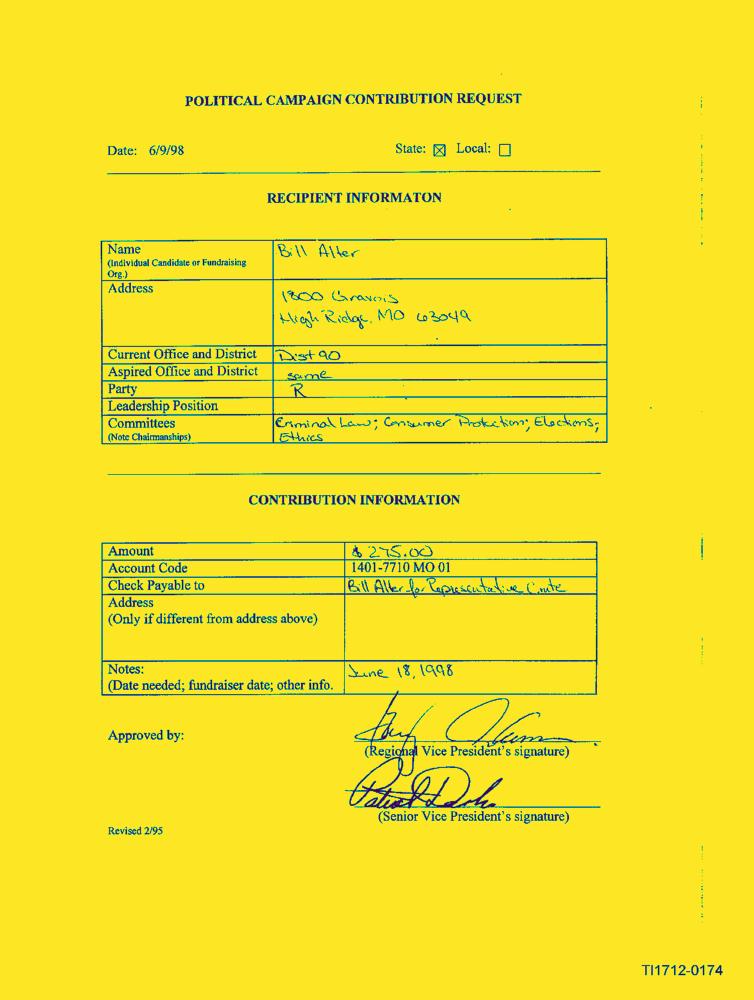 POLITICAL CAMPAIGN CONTRIBUTION REQUEST
Date: 6/9/98 State: ☒ Local: ☐
RECIPIENT INFORMATON
Name Bill Alter
(Individual Candidate or Fundraising
Org.)
Address
1800 Gravois
High Ridge, MO 63049
Current Office and District Dist 90
Aspired Office and District same
Party R
Leadership Position
Committees Criminal Law; Consumer Protection; Elections;
(Note Chairmanships) Ethics
CONTRIBUTION INFORMATION
Amount $275.00
Account Code 1401-7710 MO 01
Check Payable to Bill Alter for Representative Cmte
Address
(Only if different from address above)
Notes: June 18, 1998
(Date needed; fundraiser date; other info.
Approved by:
(Regional Vice President's signature)
(Senior Vice President's signature)
Revised 2/95
TI1712-0174